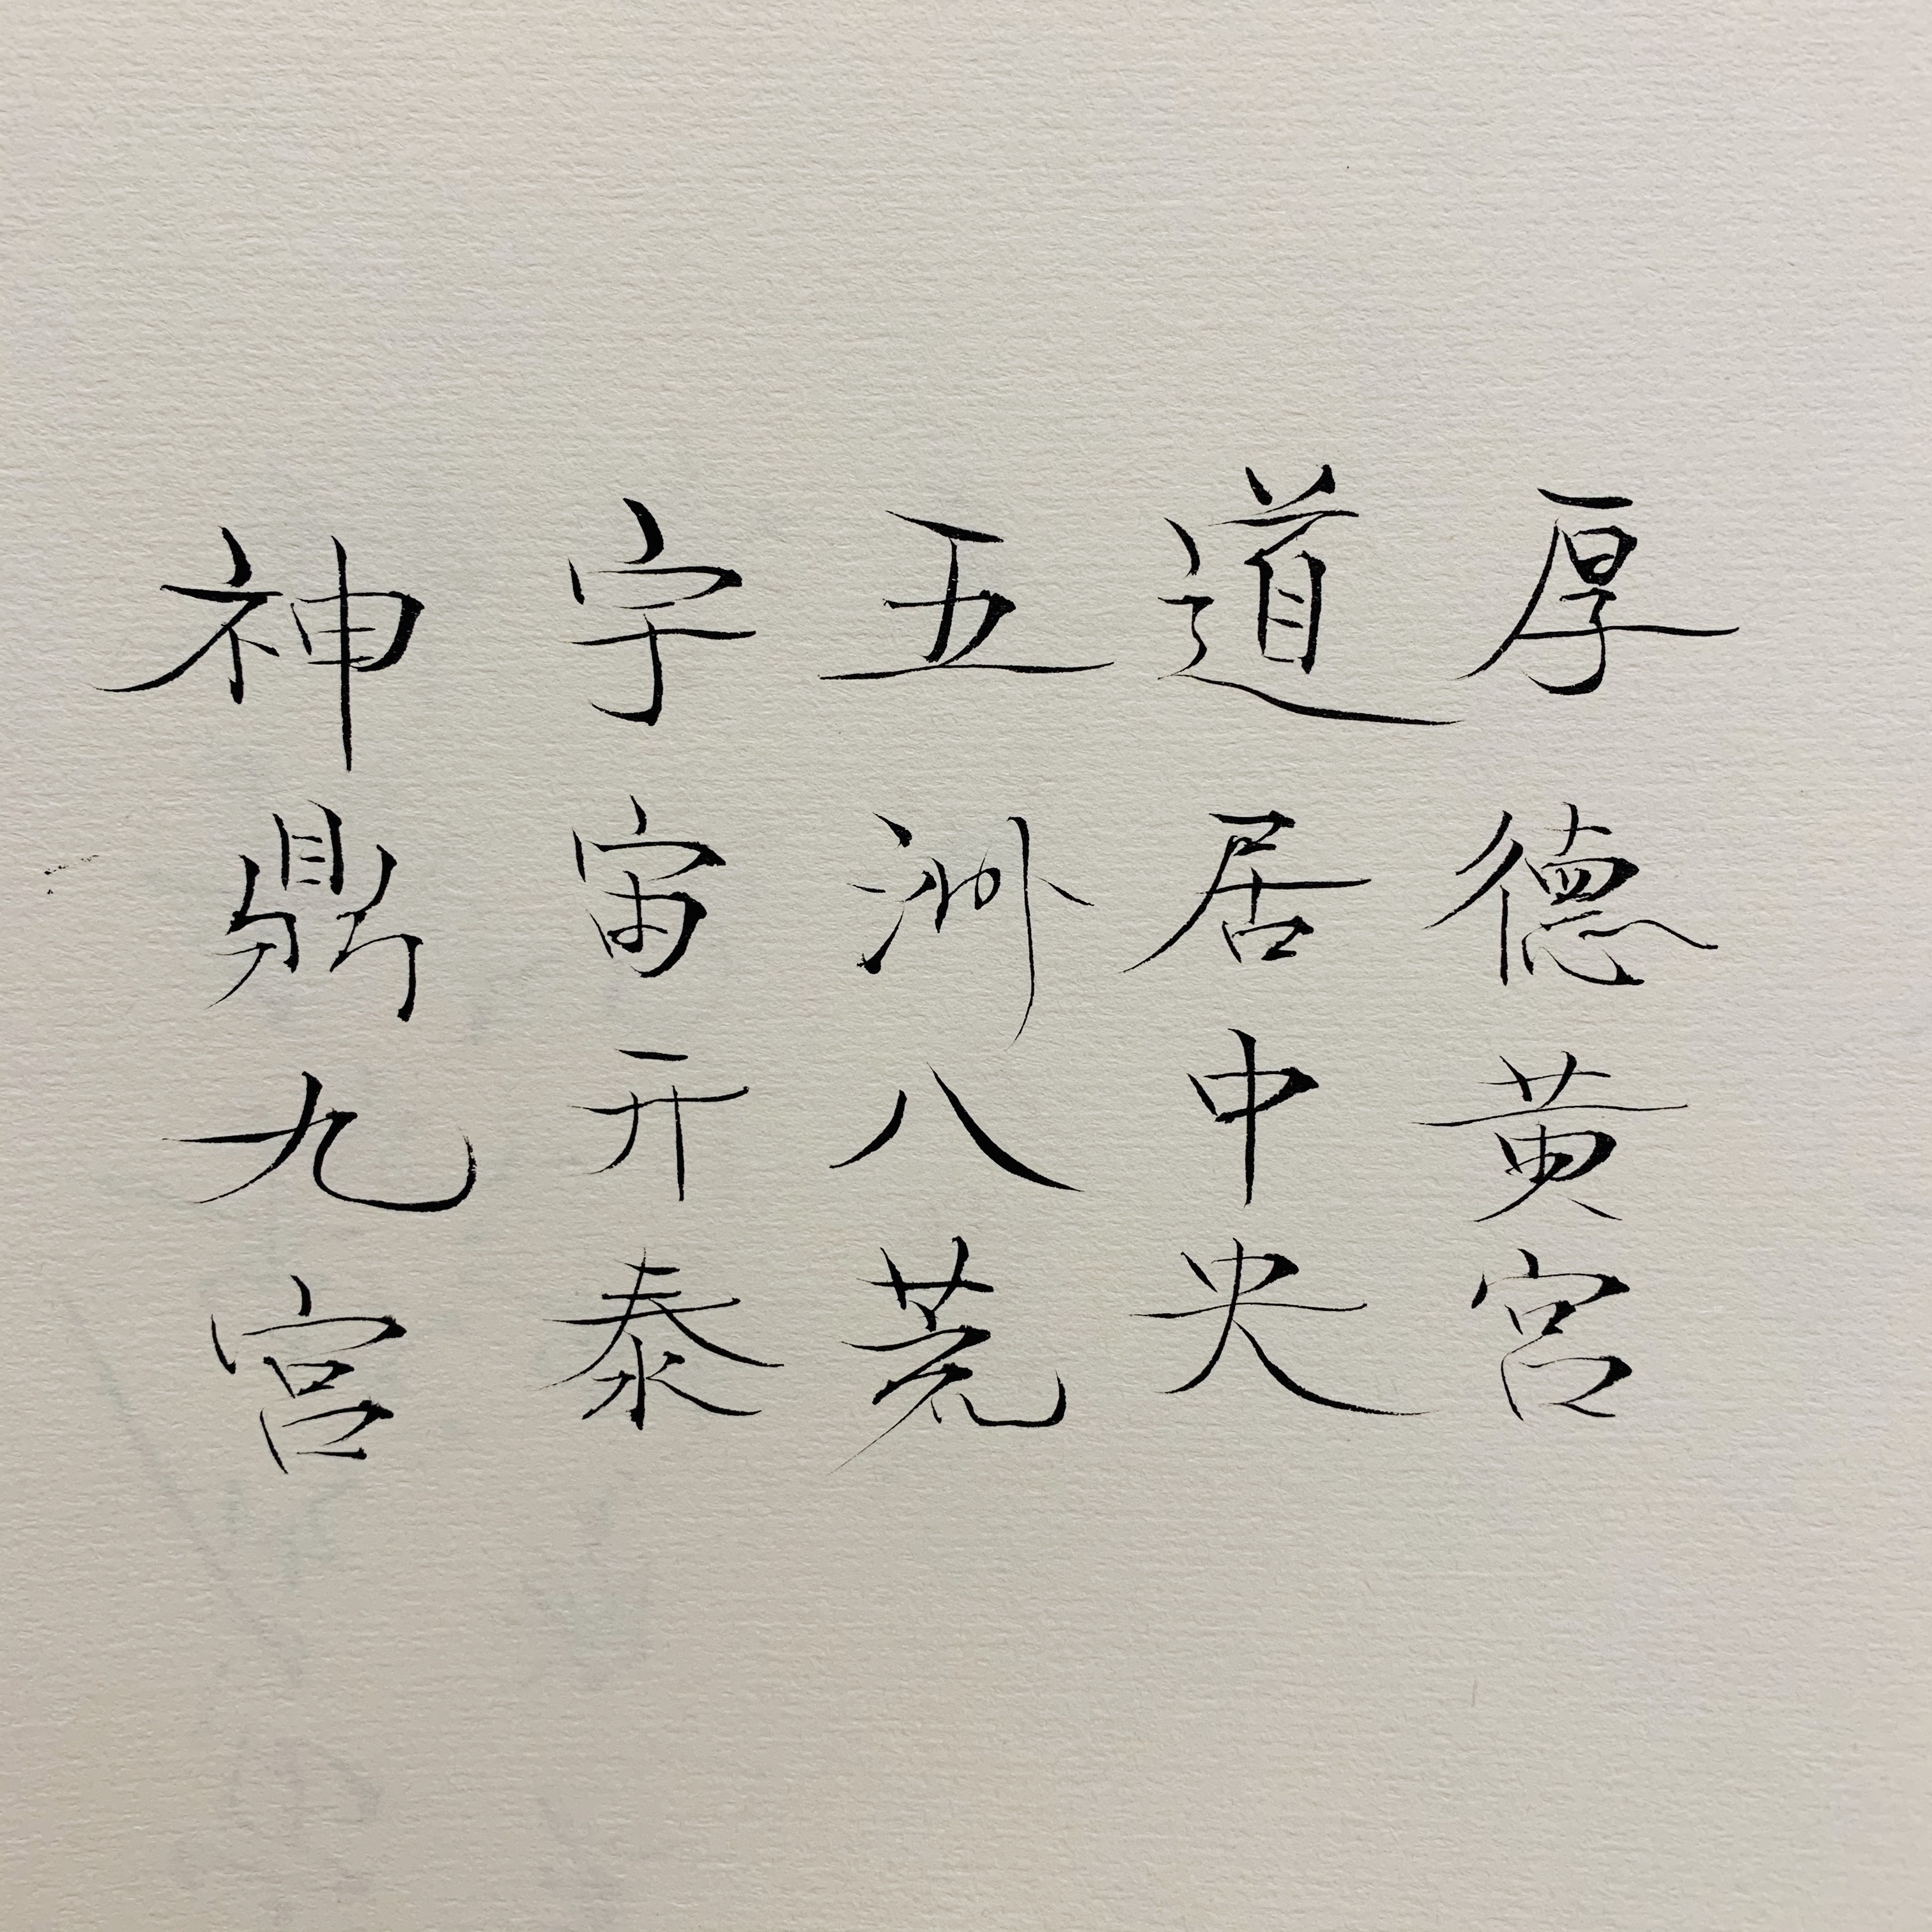 厚德黄宫
道居中央
五洲八荒
宇宙开泰
神鼎九宫